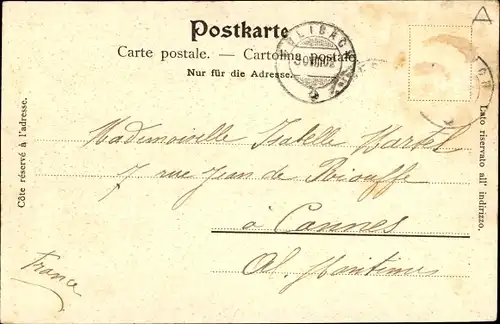 Postkarte
Carte postale. — Cartolina postale.
Nur für die Adresse.
Côté réservé à l'adresse.
Lato riservato all' indirizzo.
Mademoiselle Isabelle Martel
7 rue Jean de Riouffe
à Cannes
Al. Maritimes
France